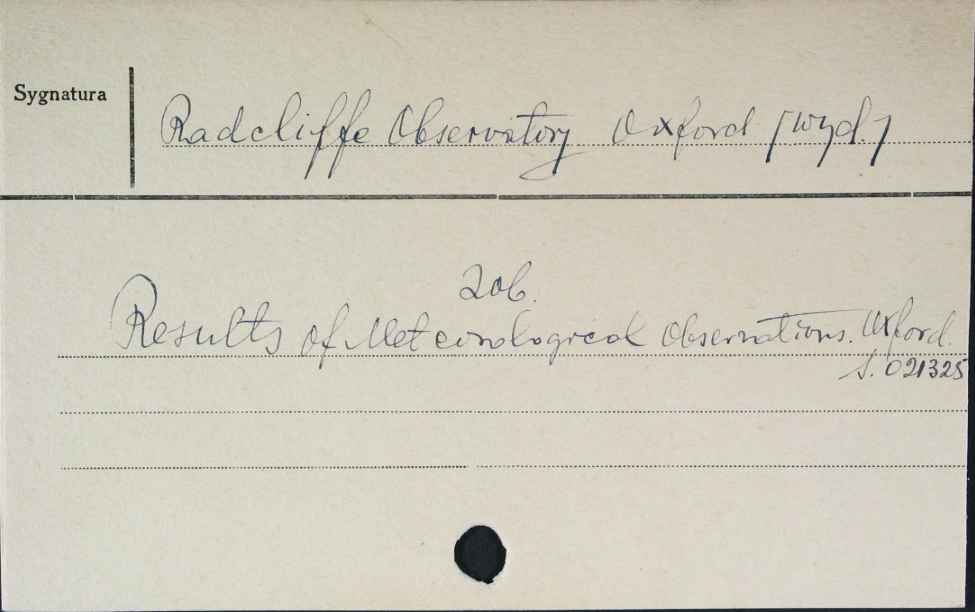 Sygnatura
Radcliffe Observatory Oxford /wyd./
Zob.
Results of Meteorological Observations. Oxford.
S. 021325